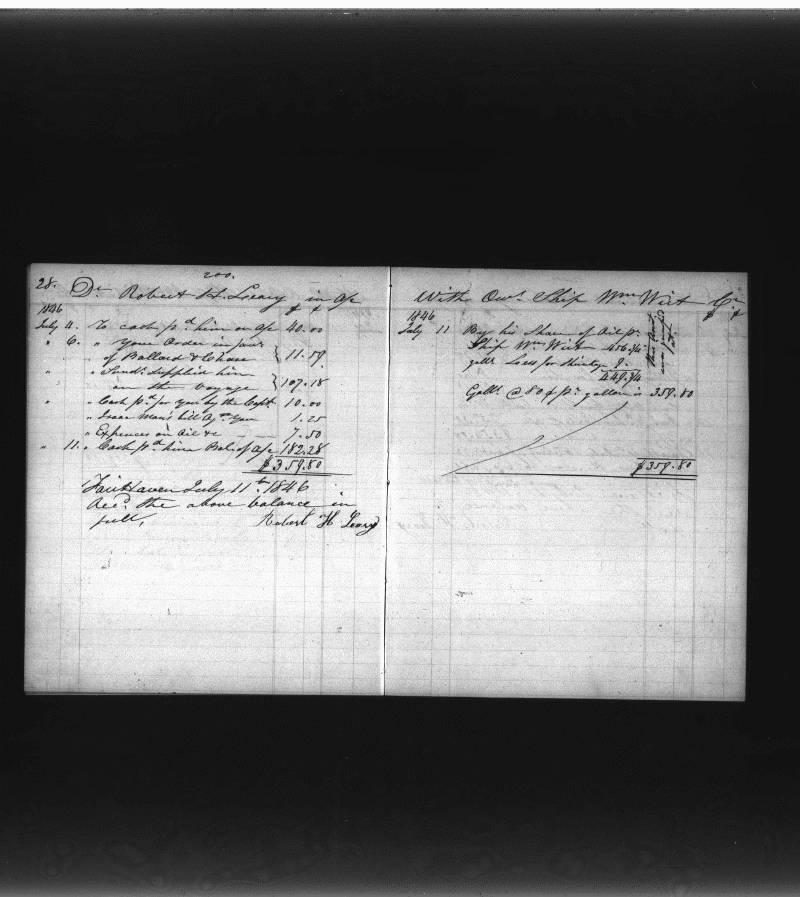 200.
28. Dr. Robert H. Leary in a/c
1846
July 4. To cash pd. him on a/c 40.00
" 6. " Your Order in favr.
of Ballard & Chase 11.59
" " Sunds. supplied him
on the voyage 107.18
" " Cash pd. for you by the Capt. 10.00
" " Isaac Man's bill agst. You 1.25
" Expences on Oil &c 7.50
" 11. " Cash pd. him Bal. of a/c 182.28
$359.80
FairHaven July 11th. 1846
Recd. the above balance in
full,
Robert H Leary
With Own. Ship Wm Wirt Cr.
1846
July 11 By his Share of Oil pr.
Ship Wm Wirt 456.3/4
galls. Less for shortage 7.
449.3/4
Galls. @ 80¢ pr. gallon is 359.80
$359.80